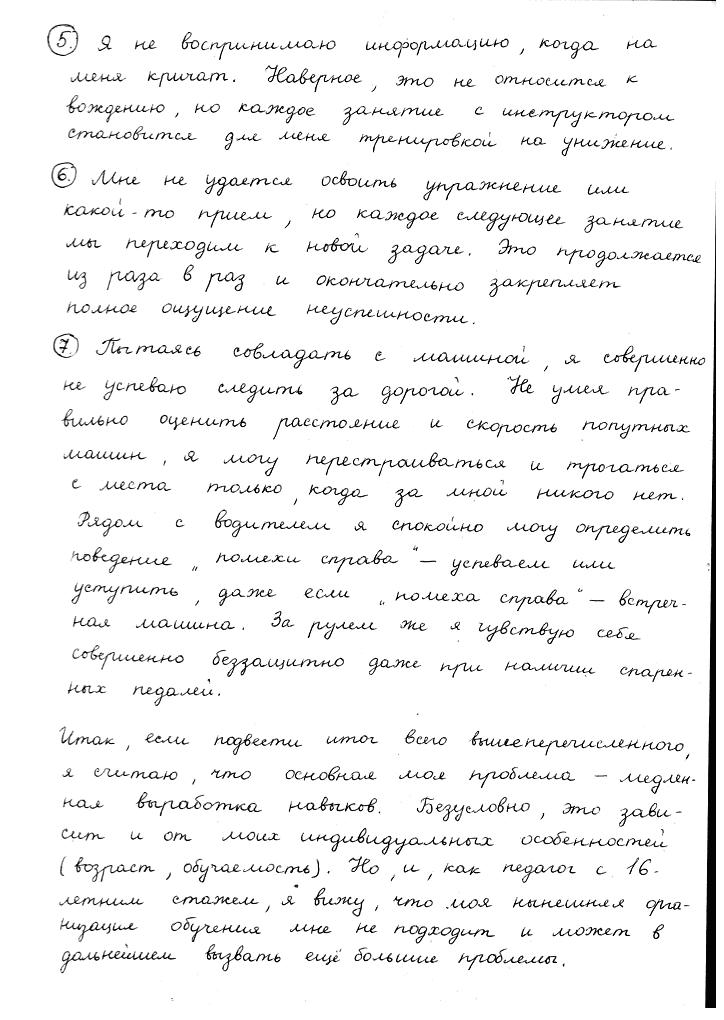 5. Я не воспринимаю информацию, когда на
меня кричат. Наверное, это не относится к
вождению, но каждое занятие с инструктором
становится для меня тренировкой на унижение.
6. Мне не удается освоить упражнение или
какой-то прием, но каждое следующее занятие
мы переходим к новой задаче. Это продолжается
из раза в раз и окончательно закрепляет
полное ощущение неуспешности.
7. Пытаясь совладать с машиной, я совершенно
не успеваю следить за дорогой. Не умея пра-
вильно оценить расстояние и скорость попутных
машин, я могу перестраиваться и трогаться
с места только, когда за мной никого нет.
Рядом с водителем я спокойно могу определить
поведение „помехи справа“ – успеваем или
уступить, даже если „помеха справа“ – встреч-
ная машина. За рулем же я чувствую себя
совершенно беззащитно даже при наличии спарен-
ных педалей.
Итак, если подвести итог всего вышеперечисленного,
я считаю, что основная моя проблема – медлен-
ная выработка навыков. Безусловно, это зави-
сит и от моих индивидуальных особенностей
(возраст, обучаемость). Но, и, как педагог с 16-
летним стажем, я вижу, что моя нынешняя орга-
низация обучения мне не подходит и может в
дальнейшем вызвать ещё большие проблемы.